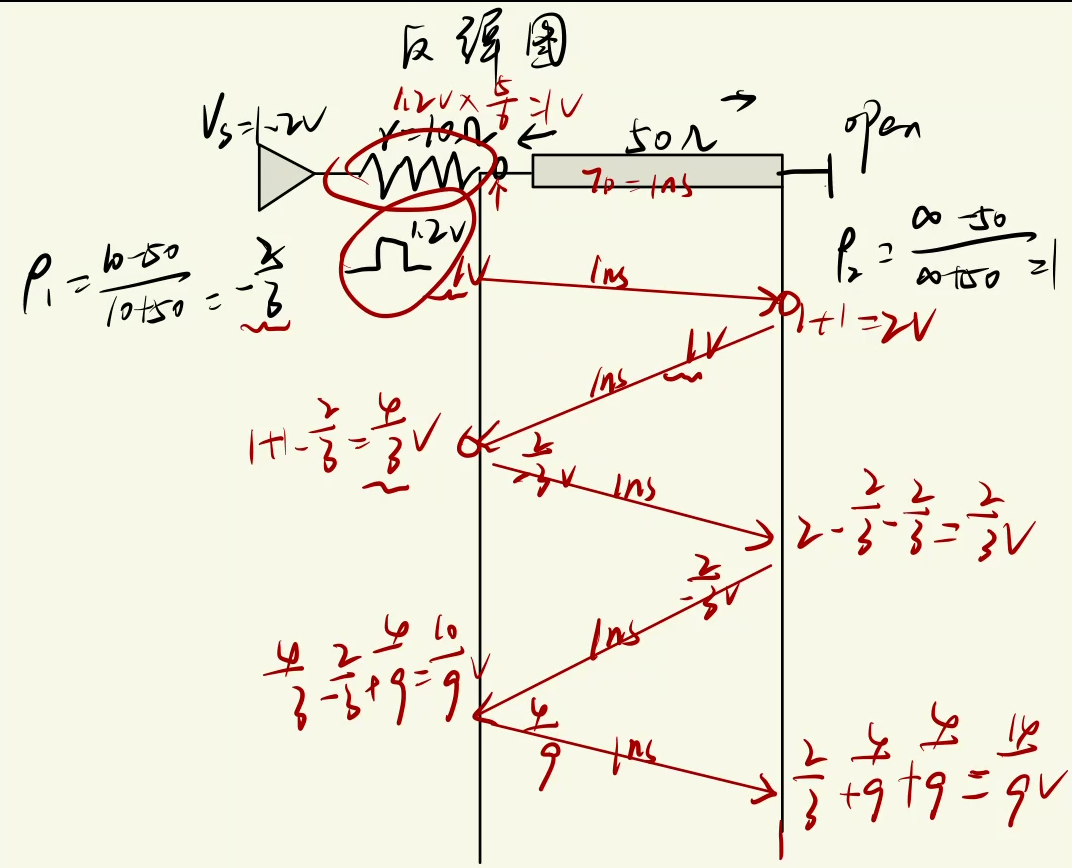 反弹图
1.2V × 5/6 = 1V
Vs=1.2V
r=10Ω
50Ω
open
TD=1ns
1.2V
ρ1 = (10-50)/(10+50) = -2/3
ρ2 = (∞-50)/(∞+50) = 1
1V
1ns
1+1=2V
1V
1ns
1+1-2/3=4/3V
-2/3V
1ns
2-2/3-2/3=2/3V
-2/3V
1ns
4/3-2/3+4/9=10/9V
4/9
1ns
2/3+4/9+4/9=14/9V